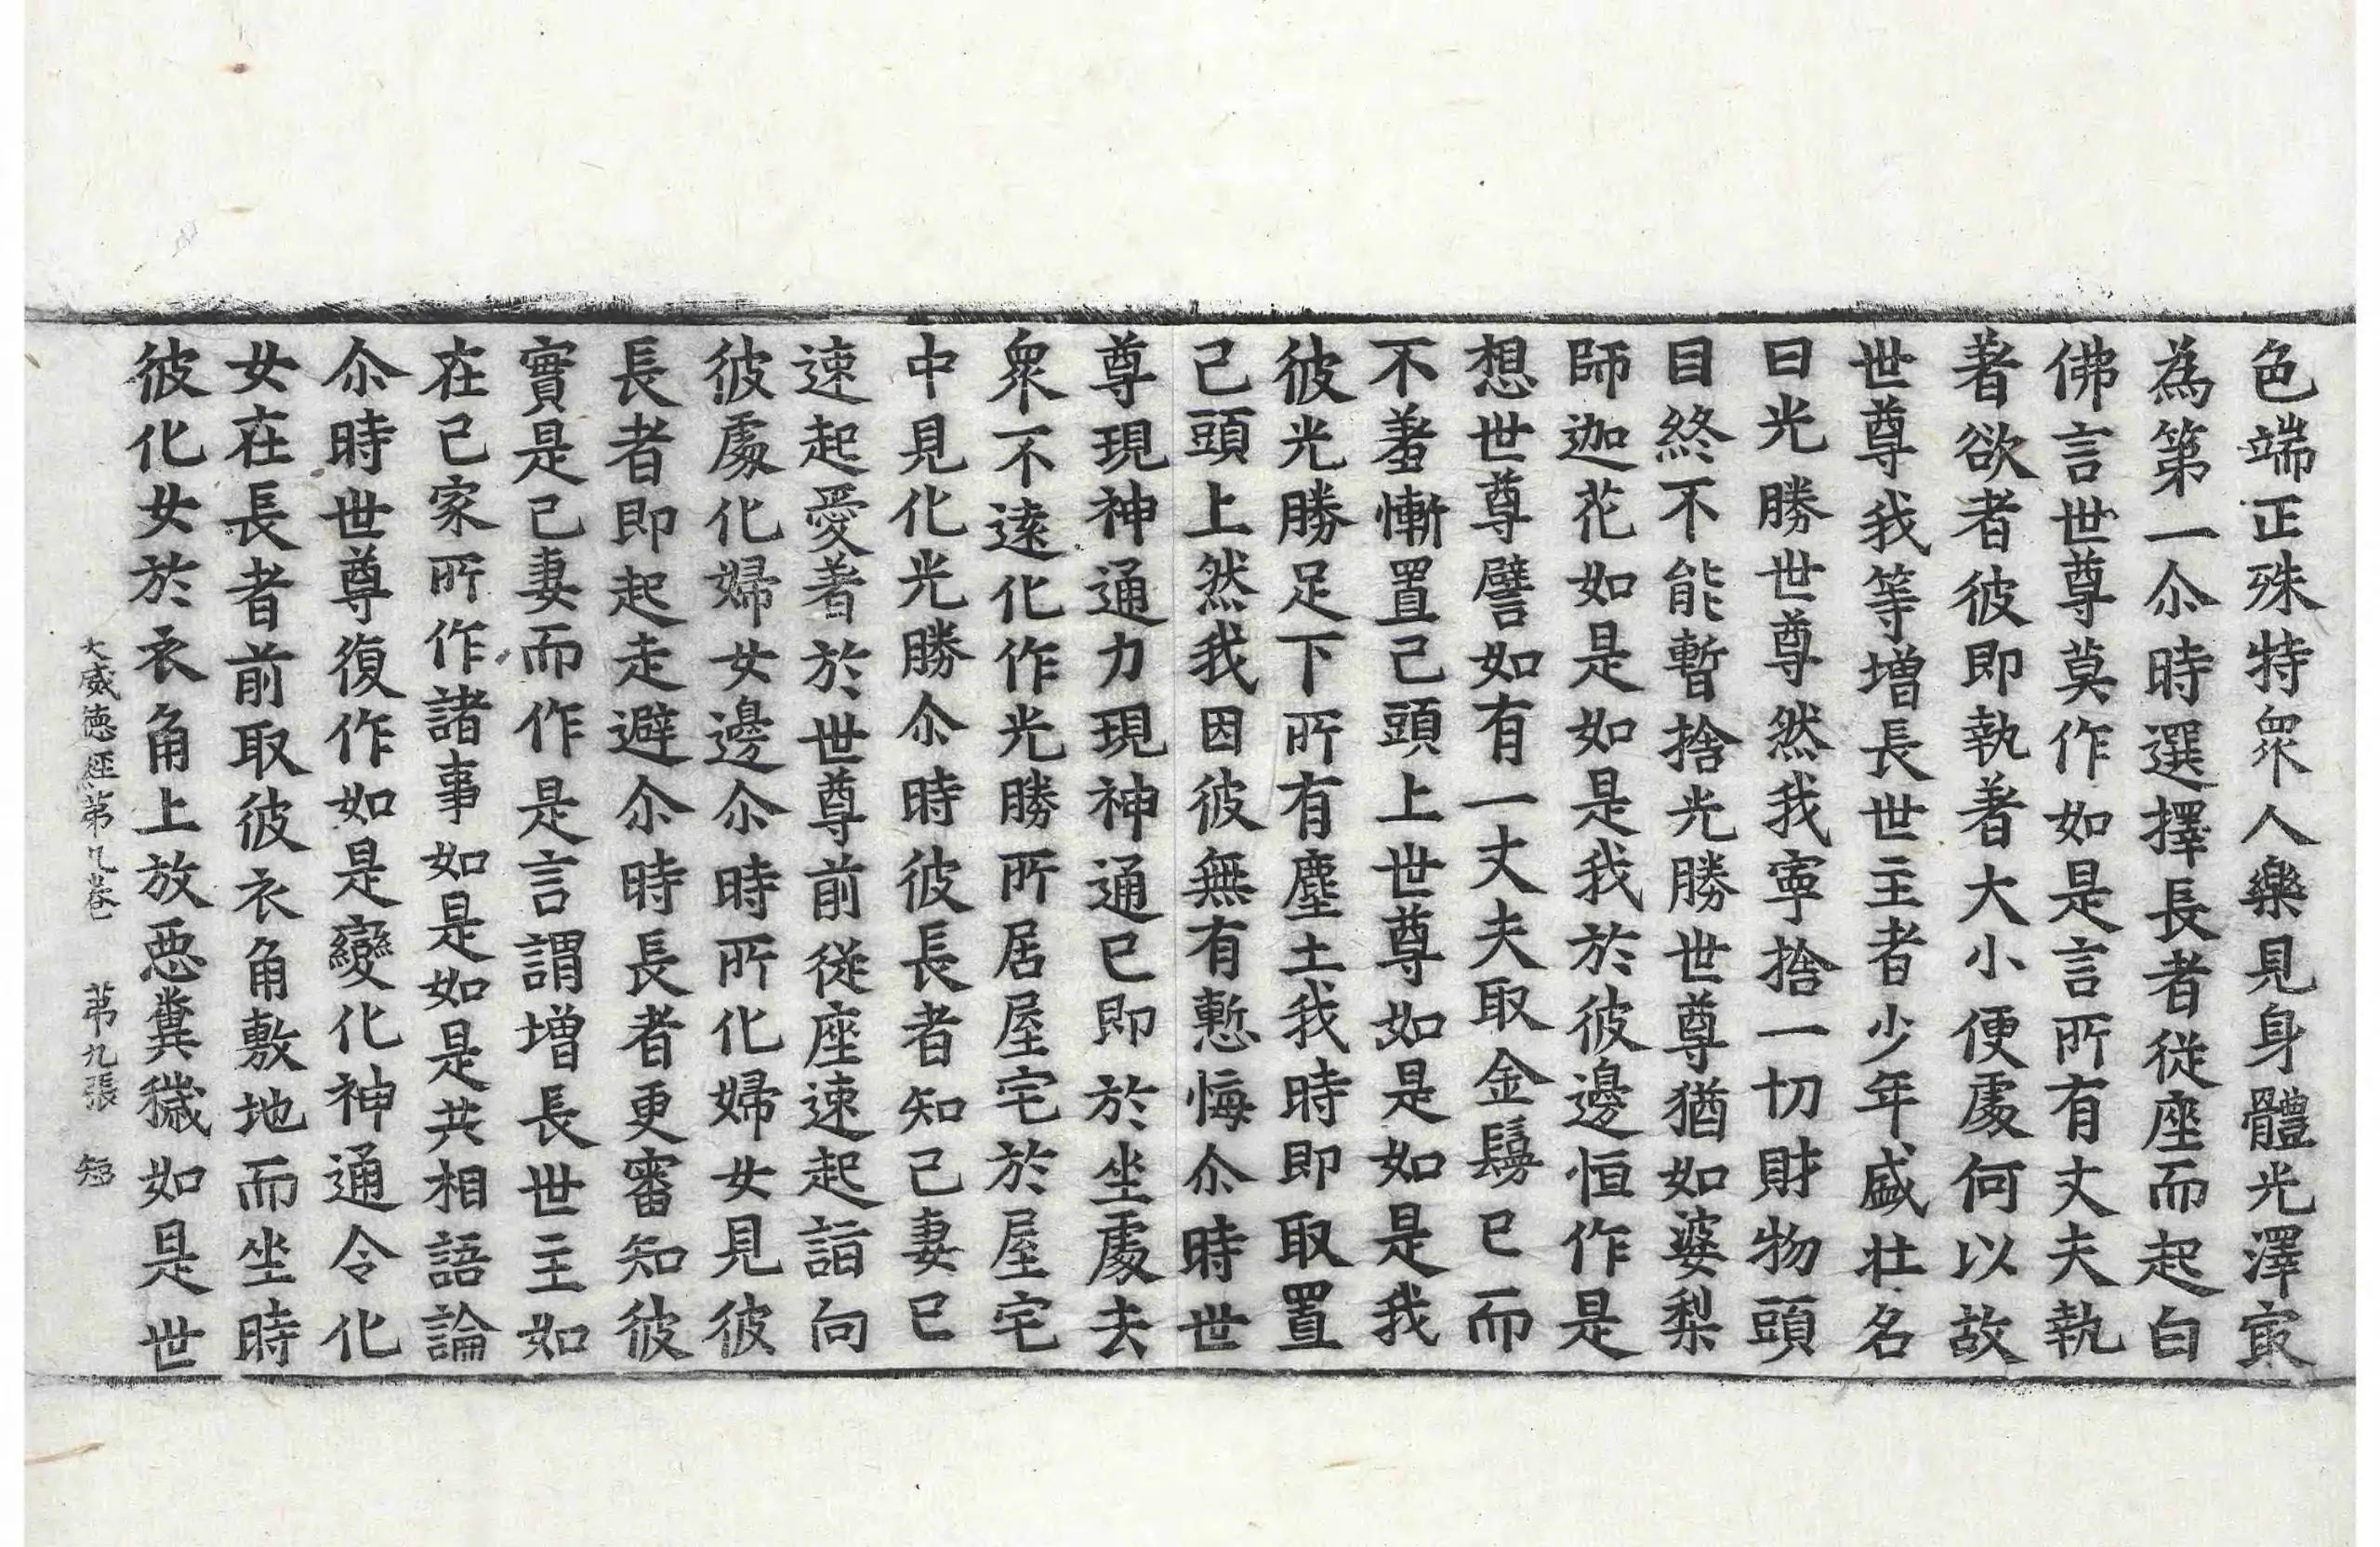 色端正殊特衆人樂見身體光澤㝡
為第一尒時選擇長者従座而起白
佛言世尊莫作如是言所有丈夫執
著欲者彼即執著大小便處何以故
世尊我等增長世主者少年盛壮名
曰光勝世尊然我寧捨一切財物頭
目終不能暫捨光勝世尊猶如婆梨
師迦花如是如是我於彼邊恒作是
想世尊譬如有一丈夫取金鬘已而
不羞慚置己頭上世尊如是如是我
彼光勝足下所有塵土我時即取置
己頭上然我因彼無有慙悔尒時世
尊現神通力現神通已即於坐處去
衆不遠化作光勝所居屋宅於屋宅
中見化光勝尒時彼長者知己妻已
速起愛著於世尊前従座速起詣向
彼處化婦女邊尒時所化婦女見彼
長者即起走避尒時長者更審知彼
實是己妻而作是言謂增長世主如
在己家所作諸事如是如是共相語論
尒時世尊復作如是變化神通令化
女在長者前取彼衣角敷地而坐時
彼化女於衣角上放惡糞穢如是世
大威徳經第九卷　第九張　短